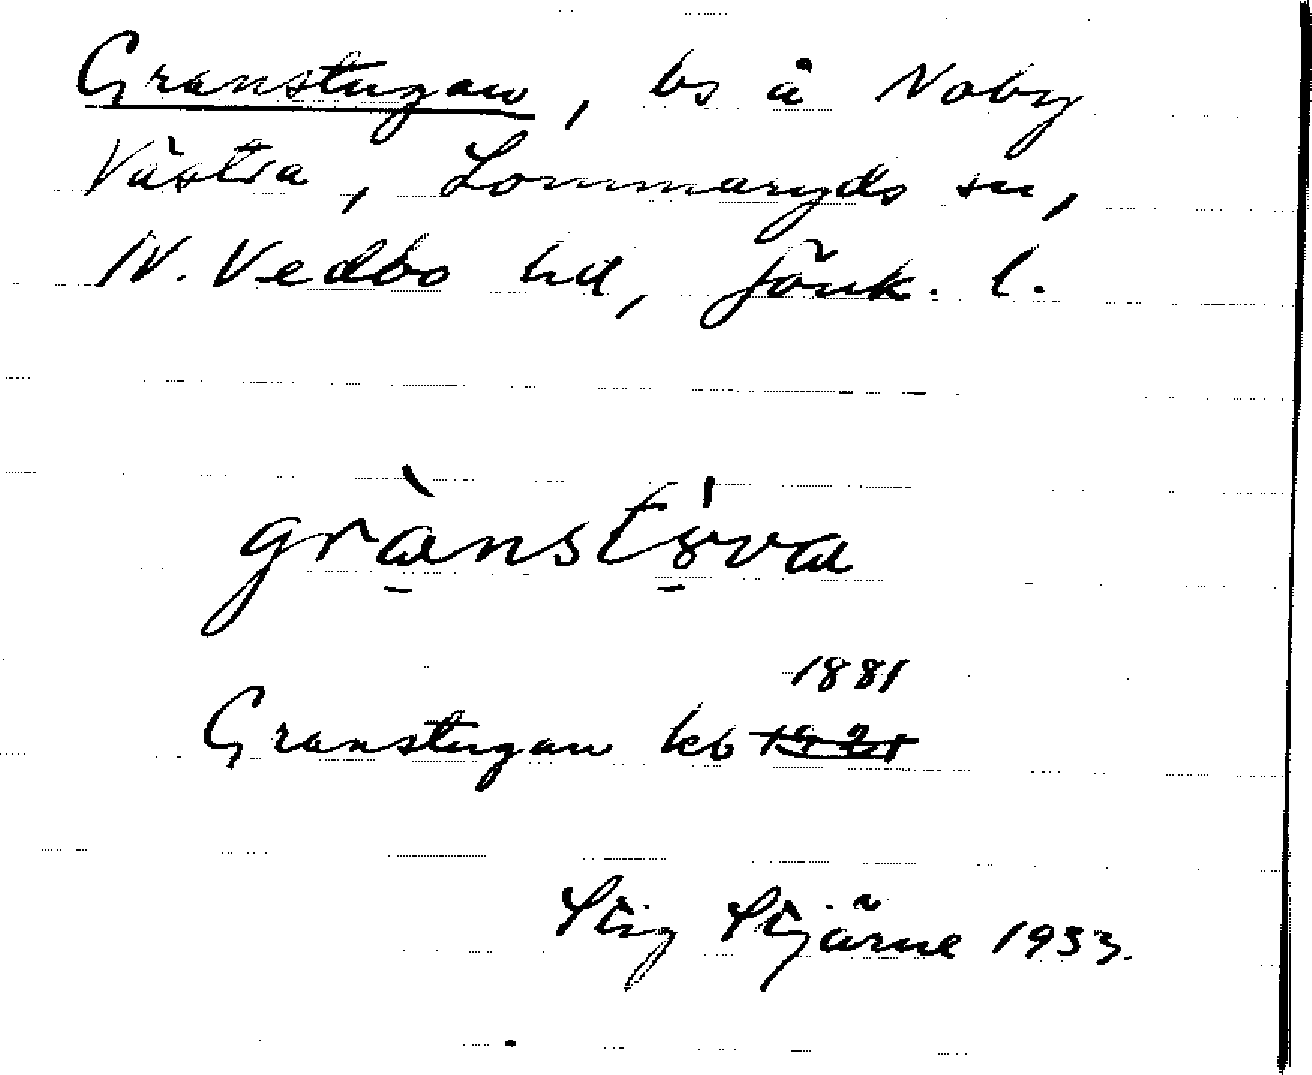 Granstugan, bs å Noby
Västra, Lommaryds sn,
N. Vedbo hd, Jönk. l.
grànstøva
1881
Granstugan kb 1921
Stig Stjärne 1933.